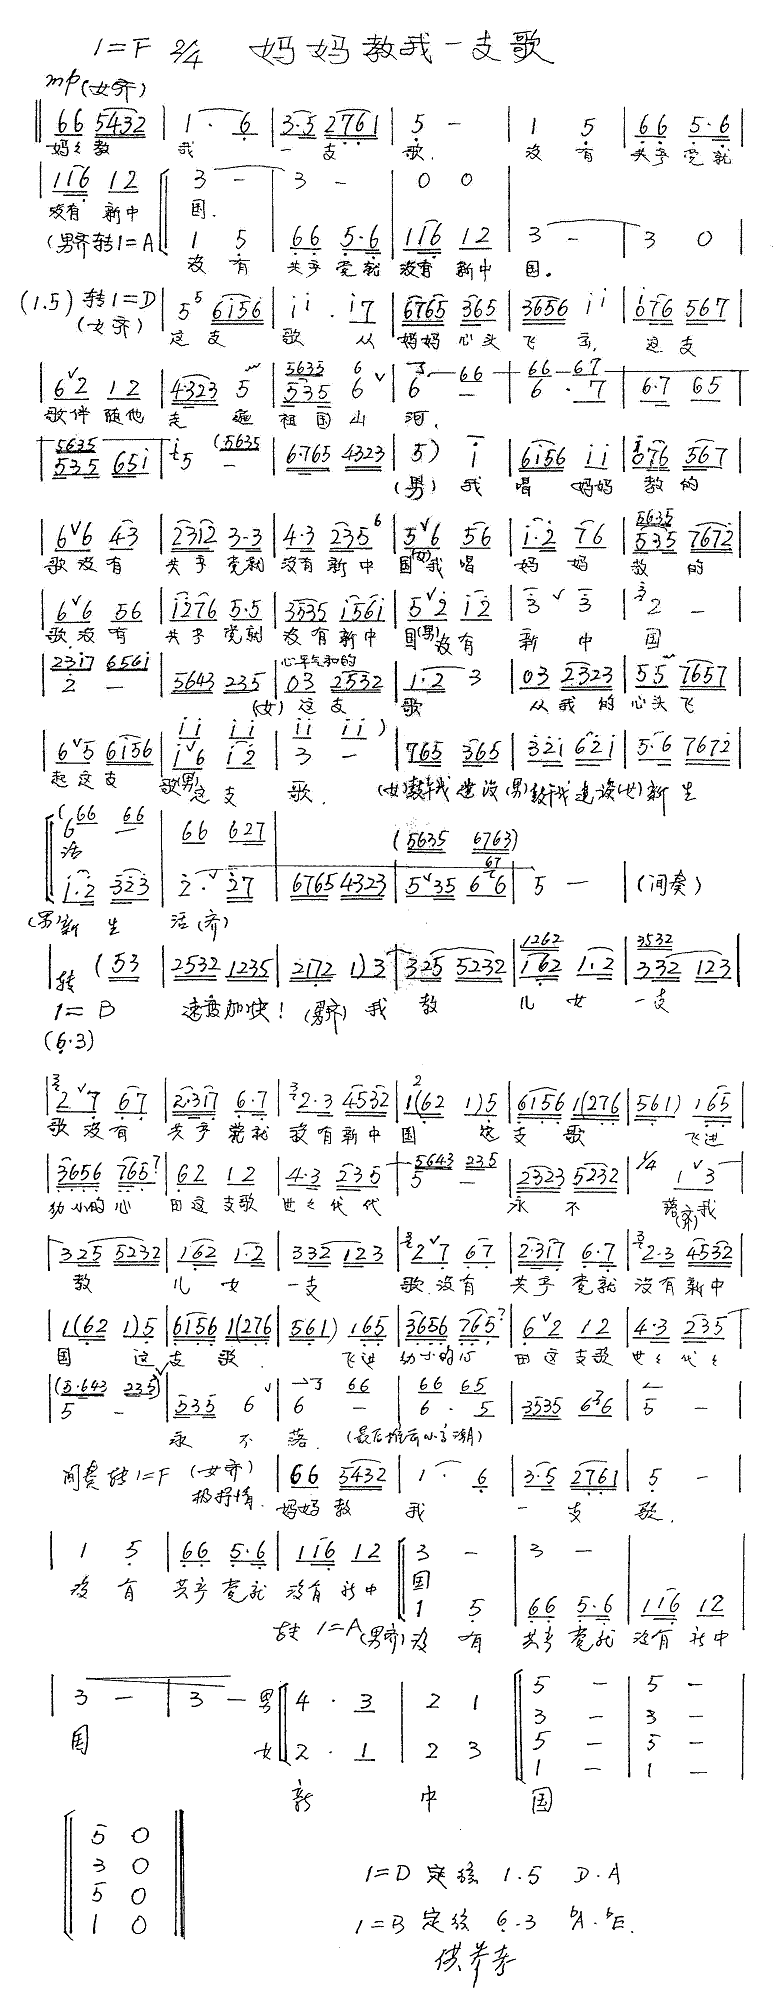 1=F 2/4 妈妈教我一支歌
mp(女齐)
‖ 66 5432 | 1 · 6 | 3·5 2761 | 5 - | 1 5 | 66 5·6 |
妈妈教 我 一 支 歌. 没 有 共产党就
| 116 12 | 3 - | 3 - | 0 0 |
没有 新中 国.
(男齐转1=A | 1 5 | 66 5·6 | 116 12 | 3 - | 3 0 |
没 有 共产党就 没有 新中 国.
(1.5) 转1=D | 5 6156 | i i · i7 | 6765 365 | 3656 i i | 676 567 |
(女齐) 这支 歌 从 妈妈心头 飞 这支
5635 6 66 66 67
| 6 2 12 | 4323 5 | 535 6 | 6 - | 6 · 7 | 6·7 65 |
歌伴随他 走 遍 祖国山 河.
5635
| 535 65i | 5 - (5635 | 6·765 4323 | 5) i | 6i56 i i | 676 567 |
(男) 我 唱 妈妈 教的
5635
| 6 6 43 | 2312 3·3 | 4·3 235 | 5 6 56 | i·2 76 | 535 7672 |
歌没有 共产党就 没有新中 国我唱 妈 妈 教的
| 6 6 56 | i276 5·5 | 3535 i56i | 5 2 i2 | 3 3 | 2 - |
歌没有 共产党就 没有新中 国(男)没有 新 中 国
23i7 656i
| 2 - | 5643 235 | 03 2532 | 1·2 3 | 03 2323 | 55 7657 |
(女) 这支 歌 从我的 心头飞
ii ii ii ii )
| 6 5 6i56 | i 6 i2 | 3 - | 765 365 | 32i 62i | 5·6 7672 |
起这支 歌(男)这支 歌. (女)教我建设(男)教我建设(女)新生
( 66 66
6 - | 66 627 | (5635 6763)
活
67
i·2 323 | 2 · 27 | 6765 4323 | 5 35 6 6 | 5 - | (间奏)
(男)新 生 活(齐)
1262 3532
| 转 (53 | 2532 1235 | 2172 1)3 | 325 5232 | 162 1·2 | 332 123 |
1=B 速度加快! (男齐) 我 教 儿 女 一支
(6·3)
| 2 7 67 | 2·317 6·7 | 2·3 4532 | 1(62 1)5 | 6156 1(276 | 561) 165 |
歌没有 共产党就 没有新中 国 这 支 歌 飞进
5643 235
| 3656 765 | 62 12 | 4·3 235 | 5 - | 2323 5232 | 1/4 1 3 |
幼小的心 田这支歌 世世代代 永 不 落(齐)我
| 325 5232 | 162 1·2 | 332 123 | 2 7 67 | 2·317 6·7 | 2·3 4532 |
教 儿 女 一支 歌.没有 共产党就 没有新中
| 1(62 1)5 | 6156 1(276 | 561) 165 | 3656 765 | 6 2 12 | 4·3 235 |
国 这 支 歌. 飞进 幼小的心 田这支歌 世世代代
(5·643 235) 66 66 65
| 5 - | 535 6 | 6 - | 6 · 5 | 3535 6 6 | 5 - |
永 不 落. (最后推向小高潮)
间奏转1=F (女齐) | 66 5432 | 1 · 6 | 3·5 2761 | 5 - |
极抒情. 妈妈教 我 一 支 歌.
| 1 5 | 66 5·6 | 116 12 | 3 - | 3 - |
没 有 共产党就 没有新中 国
1 5 | 66 5·6 | 116 12 |
转1=A(男齐)没 有 共产党就 没有新中
| 3 - | 3 - 男 4 · 3 | 2 1 | 5 - | 5 - |
3 - | 3 - |
国 女 2 · 1 | 2 3 | 5 - | 5 - |
1 - | 1 - |
新 中 国
5 0
3 0
5 0
1 0
1=D 定弦 1.5 D.A
1=B 定弦 6.3 ♭A.♭E.